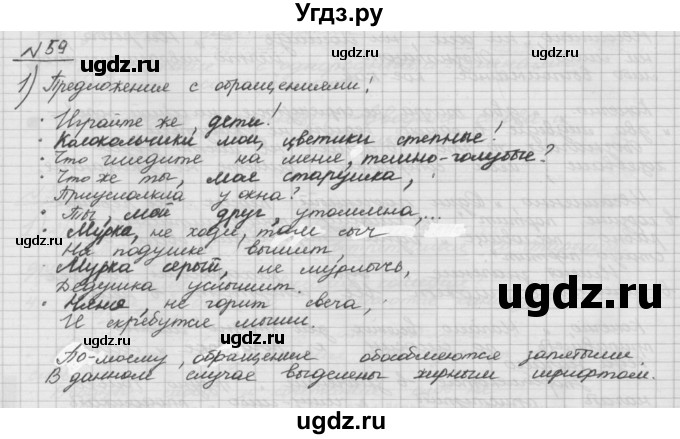 Угдз.ру
N 59
1) Предложения с обращениями:
• Играйте же, дети!
• Колокольчики мои, цветики степные!
• Что глядите на меня, темно-голубые?
• Что же ты, моя старушка,
Приумолкла у окна?
• Ты, мой друг, утомлена,...
• Мурка, не ходи, там сыч
На подушке вышит,
• Мурка серый, не мурлычь,
Дедушка услышит.
• Няня, не горит свеча,
И скребутся мыши.
По-моему, обращения обособляются запятыми.
В данном случае выделены жирным шрифтом.
ugdz.ru
ugdz.ru
ugdz.ru
ugdz.ru
ugdz.ru
ugdz.ru
ugdz.ru
ugdz.ru